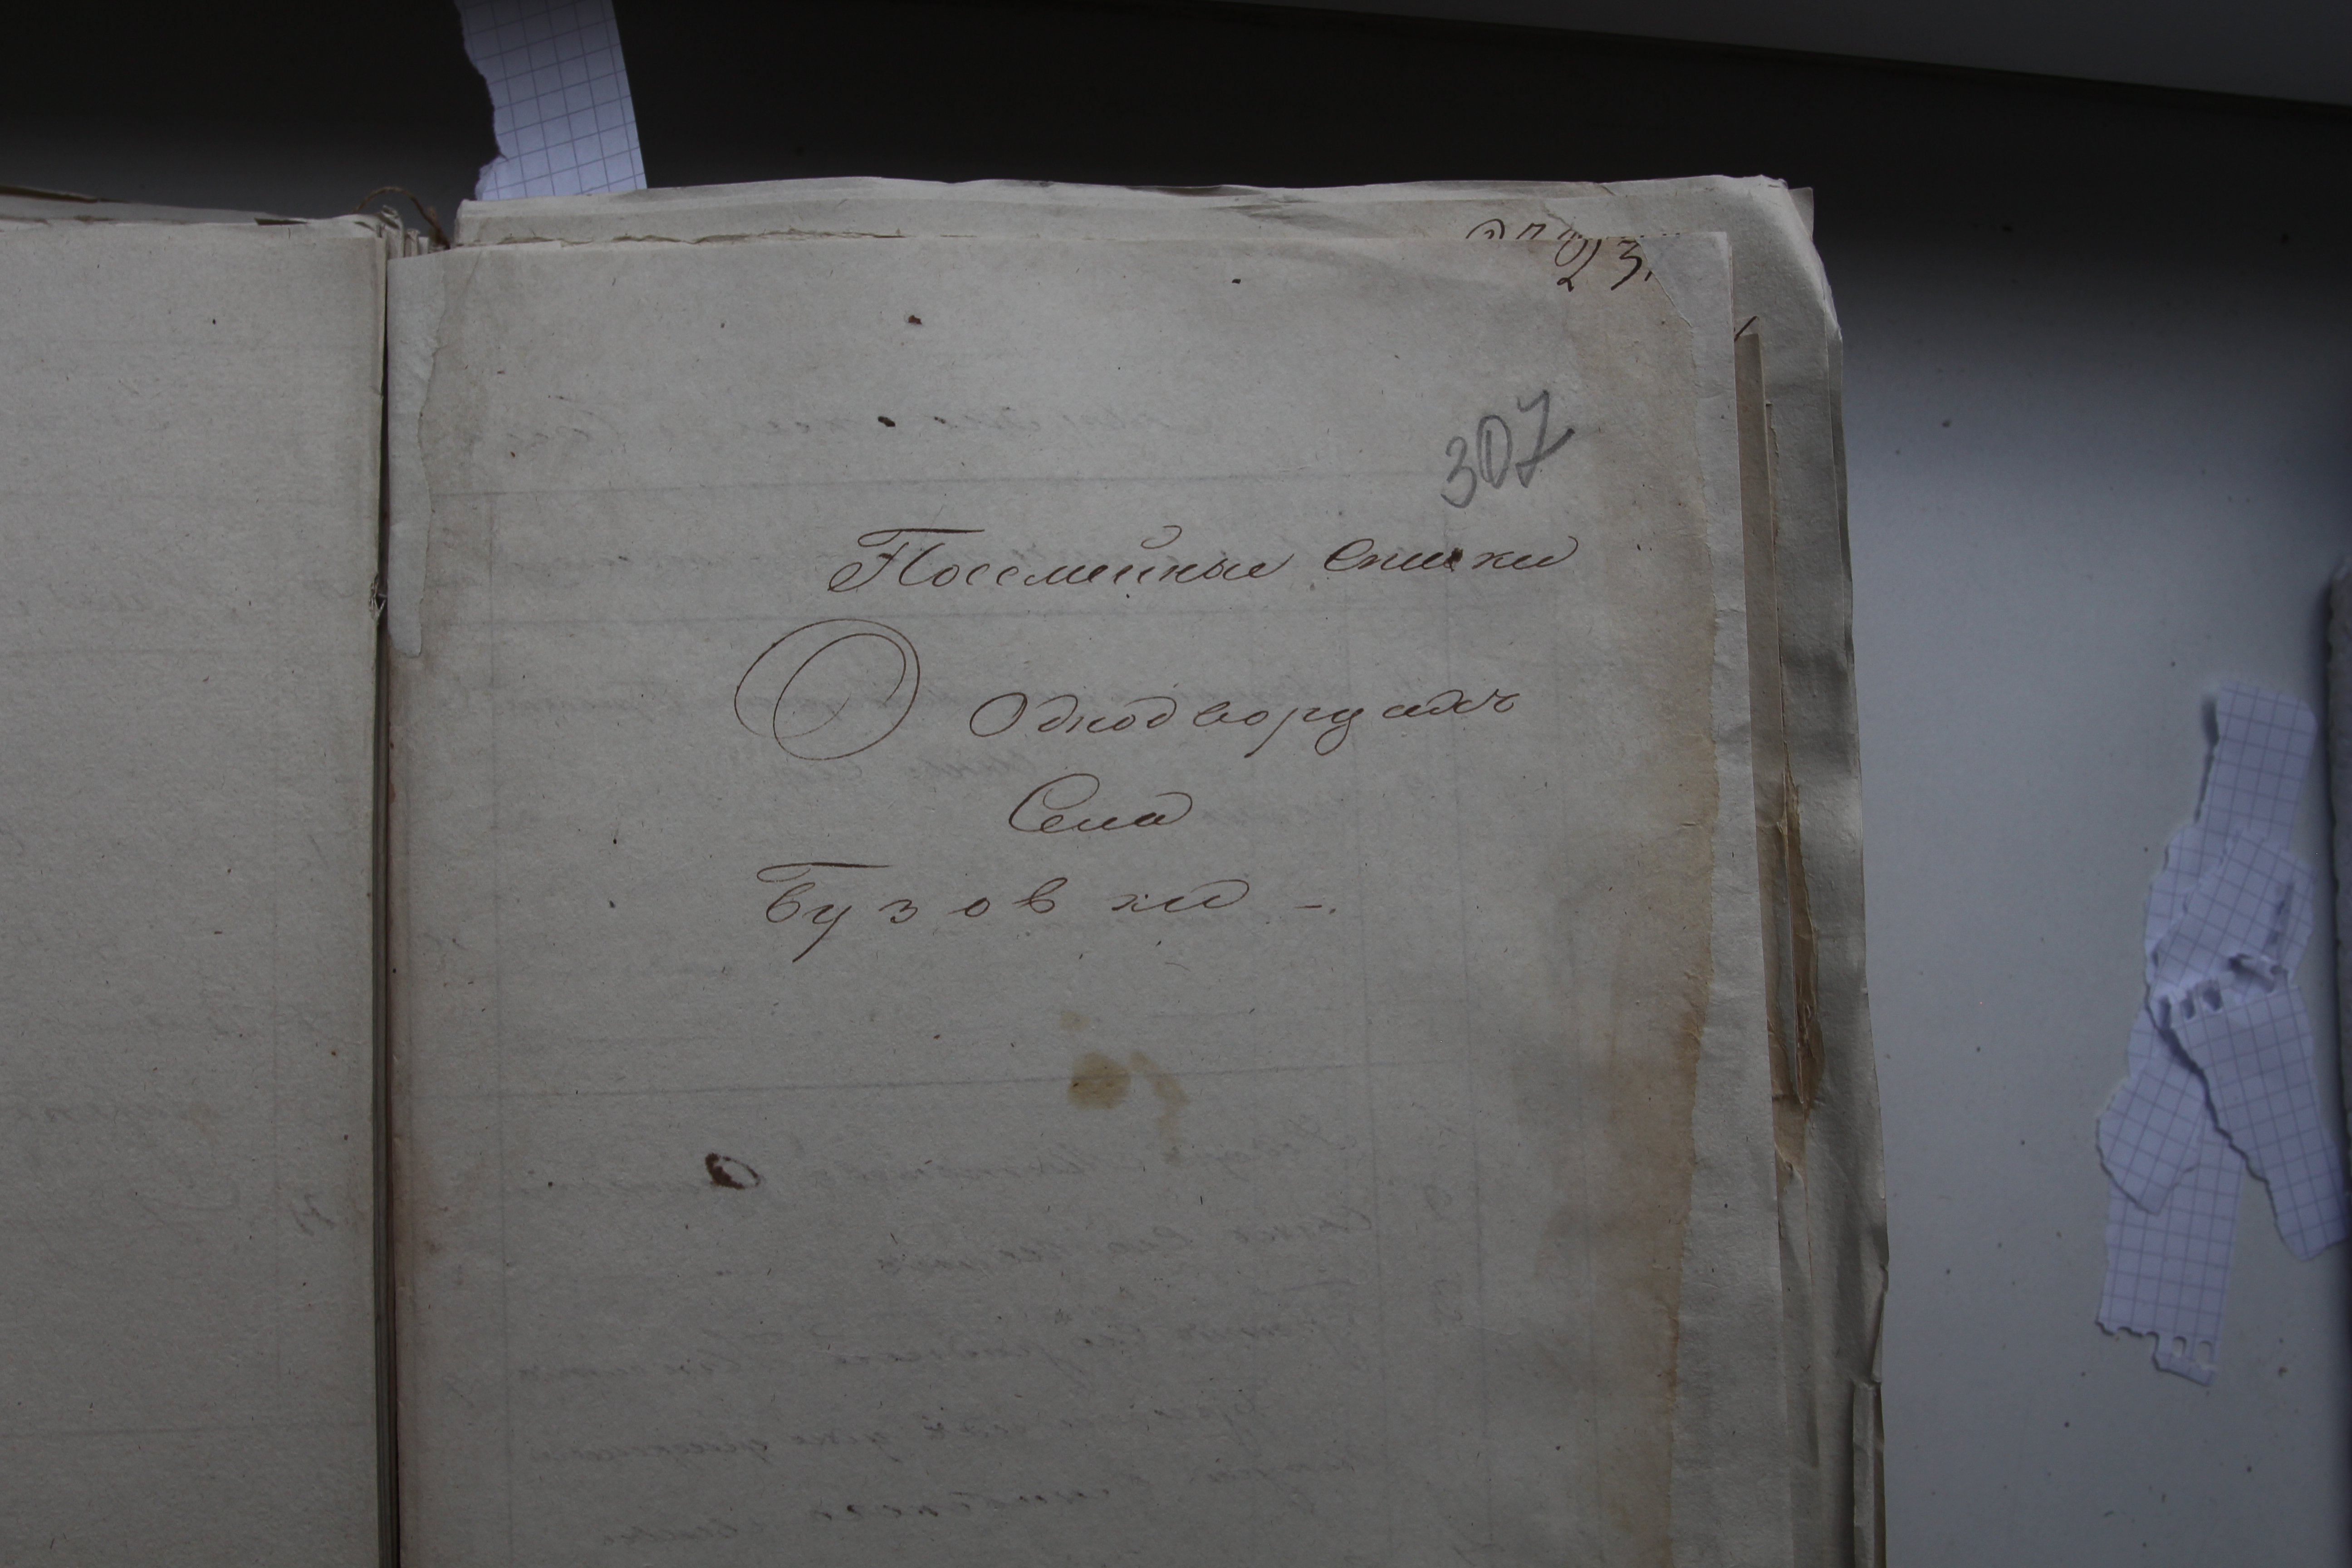 23.
307
Посемейные Списки
О Однодворцахъ
Села
Бузовки -.